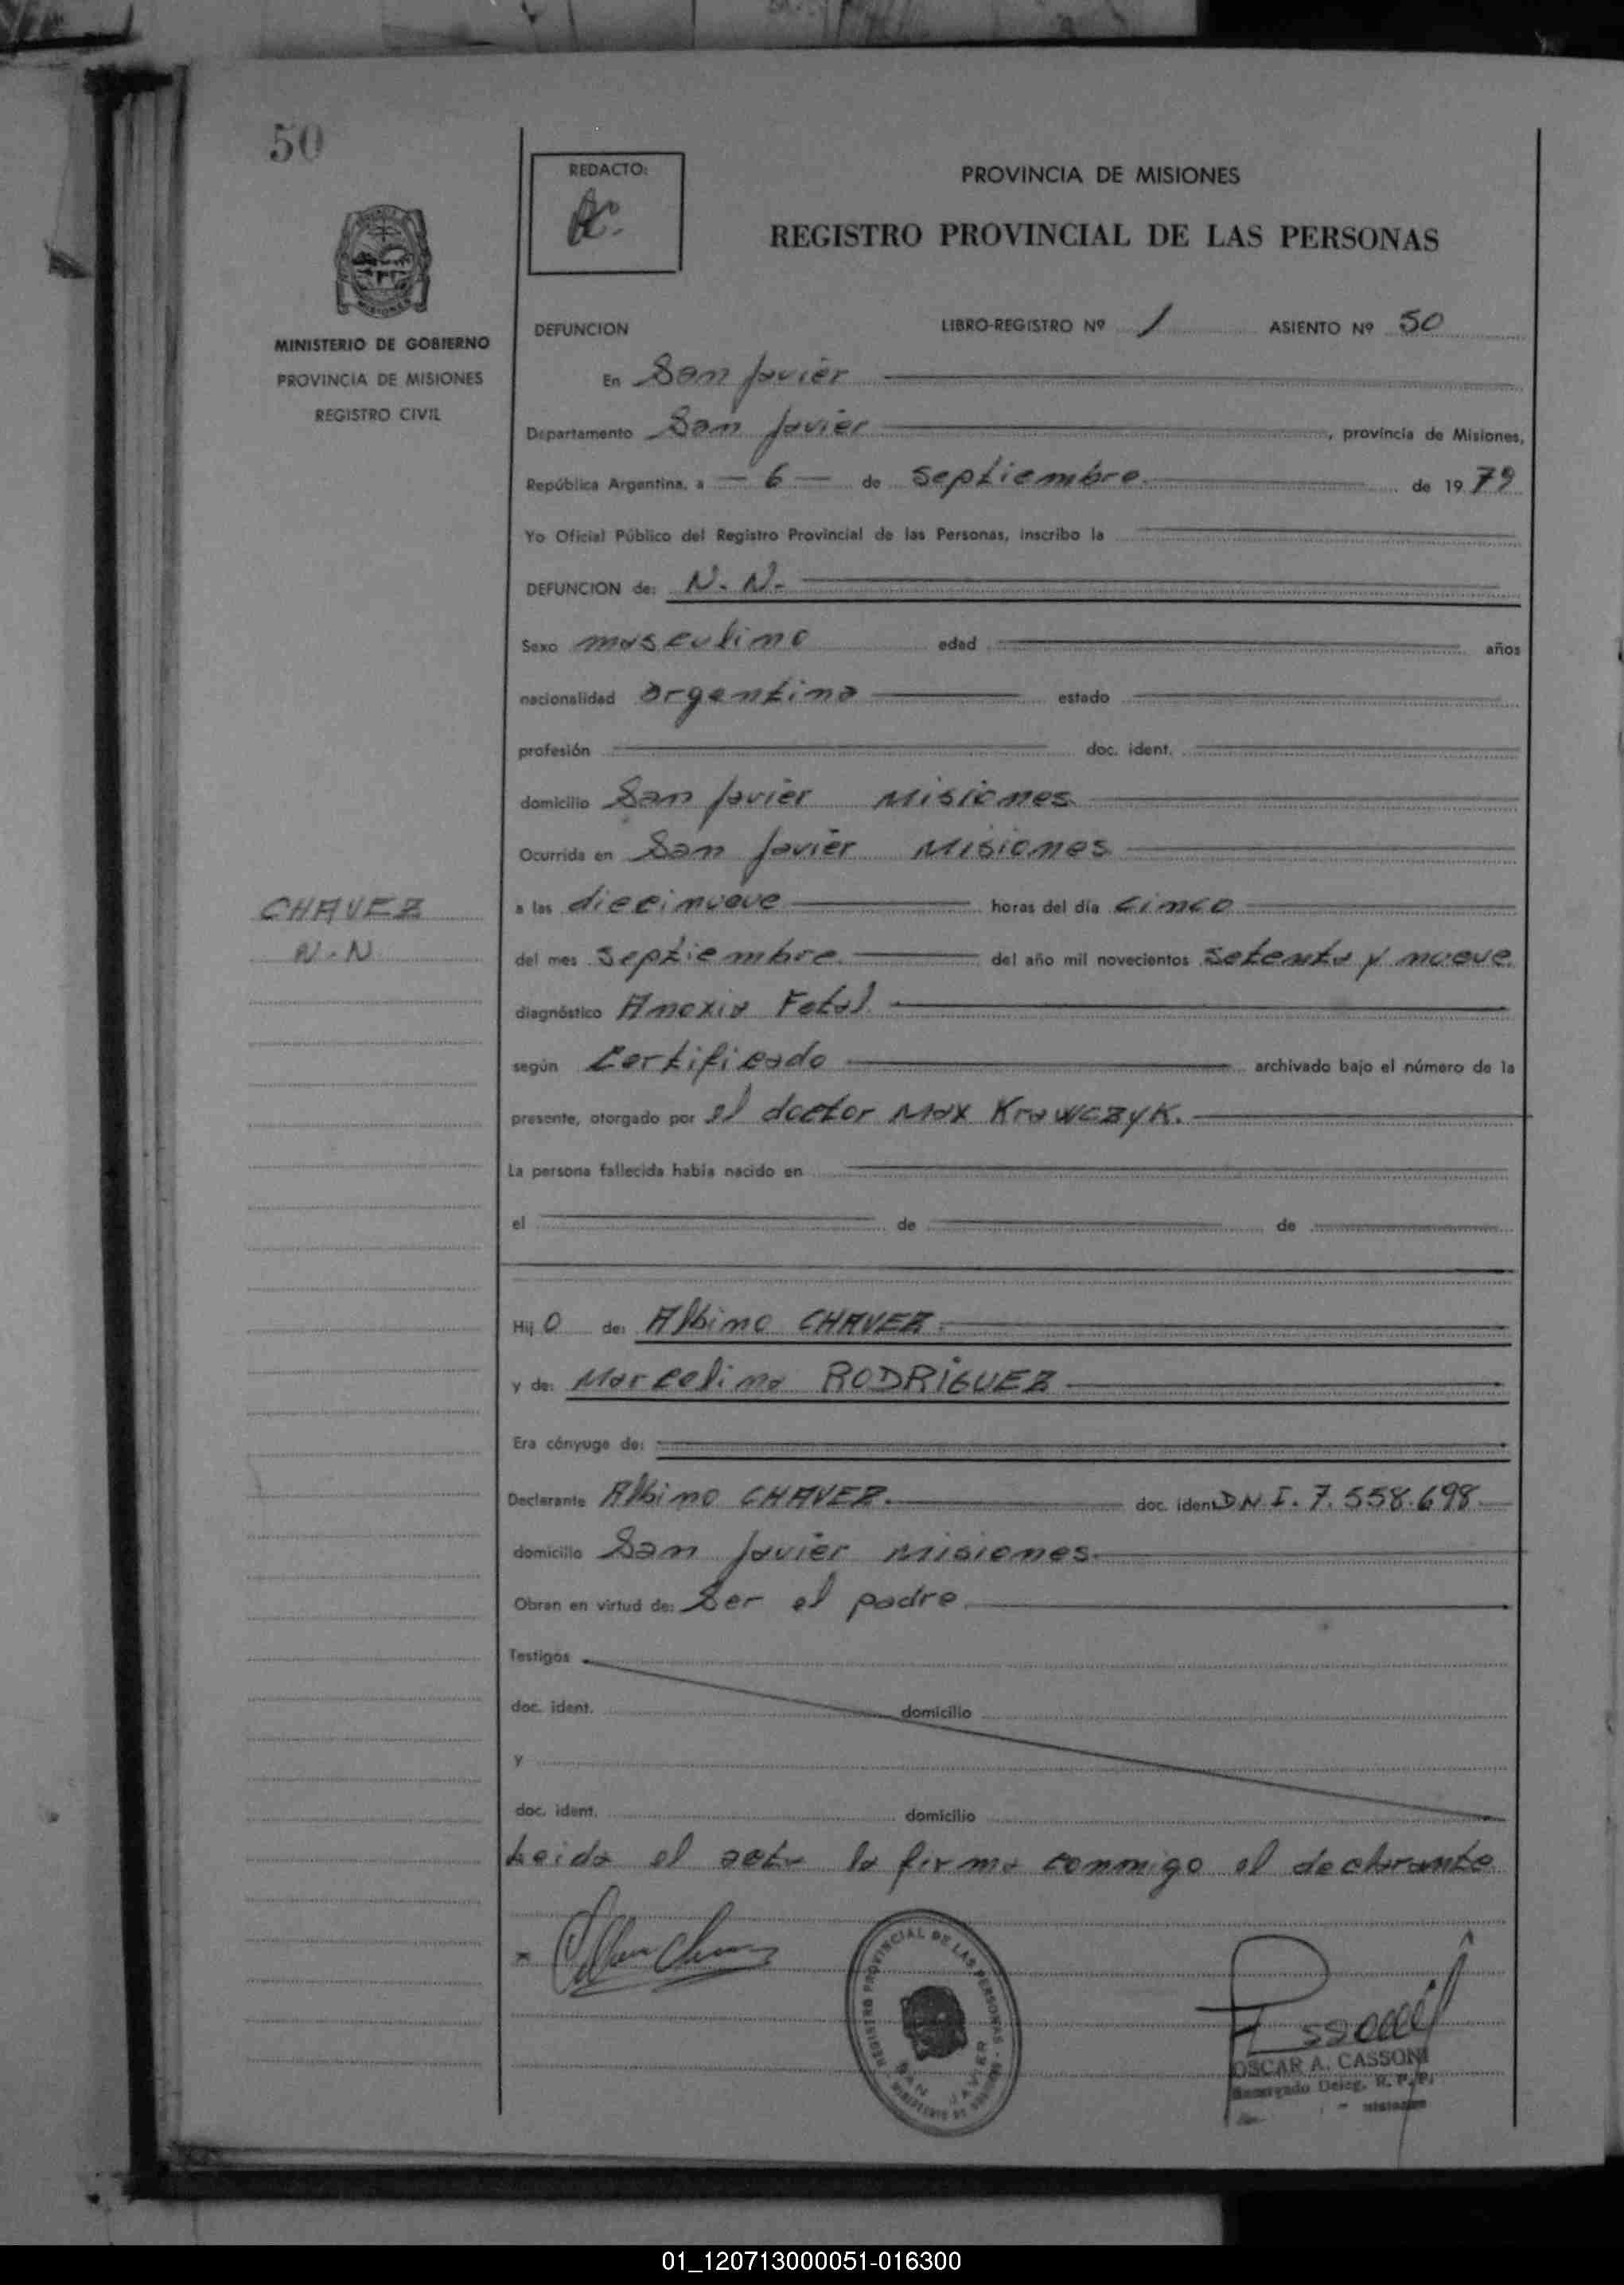 50
REDACTO:
PROVINCIA DE MISIONES
REGISTRO PROVINCIAL DE LAS PERSONAS
MINISTERIO DE GOBIERNO
PROVINCIA DE MISIONES
REGISTRO CIVIL
DEFUNCION LIBRO-REGISTRO Nº 1 ASIENTO Nº 50
En San Javier
Departamento San Javier, provincia de Misiones,
República Argentina, a - 6 - de septiembre de 1979
Yo Oficial Público del Registro Provincial de las Personas, inscribo la
DEFUNCION de: N. N.
Sexo masculino edad años
nacionalidad argentina estado
profesión doc. ident.
domicilio San Javier Misiones
Ocurrida en San Javier Misiones
CHAVEZ
N. N
a las diecinueve horas del día cinco
del mes septiembre del año mil novecientos setenta y nueve
diagnóstico Anoxia Fetal.
según certificado archivado bajo el número de la
presente, otorgado por el doctor Max Krawczyk.
La persona fallecida había nacido en
el de de
Hij o de: Albino CHAVEZ
y de: Marcelina RODRIGUEZ
Era cónyuge de:
Declarante Albino CHAVEZ. doc. iden D N I. 7. 558.698
domicilio San Javier Misiones
Obran en virtud de: Ser el padre
Testigos
doc. ident. domicilio
y
doc. ident. domicilio
Leida el acta la firma conmigo el declarante
REGISTRO PROVINCIAL DE LAS PERSONAS
SAN JAVIER
OSCAR A. CASSONI
Encargado Deleg. R. P. P.
Misiones
01_120713000051-016300